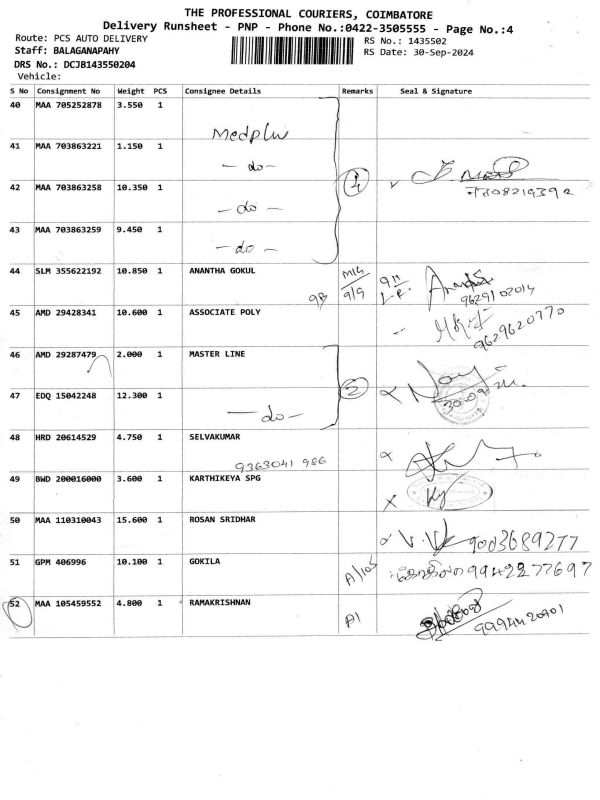 THE PROFESSIONAL COURIERS, COIMBATORE
Delivery Runsheet - PNP - Phone No.:0422-3505555 - Page No.:4
Route: PCS AUTO DELIVERY
RS No.: 1435502
Staff: BALAGANAPAHY
RS Date: 30-Sep-2024
DRS No.: DCJB143550204
Vehicle:
S No Consignment No Weight PCS Consignee Details Remarks Seal & Signature
40 MAA 705252878 3.550 1 Medplus
41 MAA 703863221 1.150 1 - do -
42 MAA 703863258 10.350 1 - do - 4
43 MAA 703863259 9.450 1 - do -
44 SLM 355622192 10.850 1 ANANTHA GOKUL
9629102014
45 AMD 29428341 10.600 1 ASSOCIATE POLY
9629620770
46 AMD 29287479 2.000 1 MASTER LINE
47 EDQ 15042248 12.300 1 - do - 2
48 HRD 20614529 4.750 1 SELVAKUMAR
9363041 986
49 BWD 200016000 3.600 1 KARTHIKEYA SPG
50 MAA 110310043 15.600 1 ROSAN SRIDHAR
9003689277
51 GPM 406996 10.100 1 GOKILA
கோகிலா 9942277697
52 MAA 105459552 4.800 1 RAMAKRISHNAN